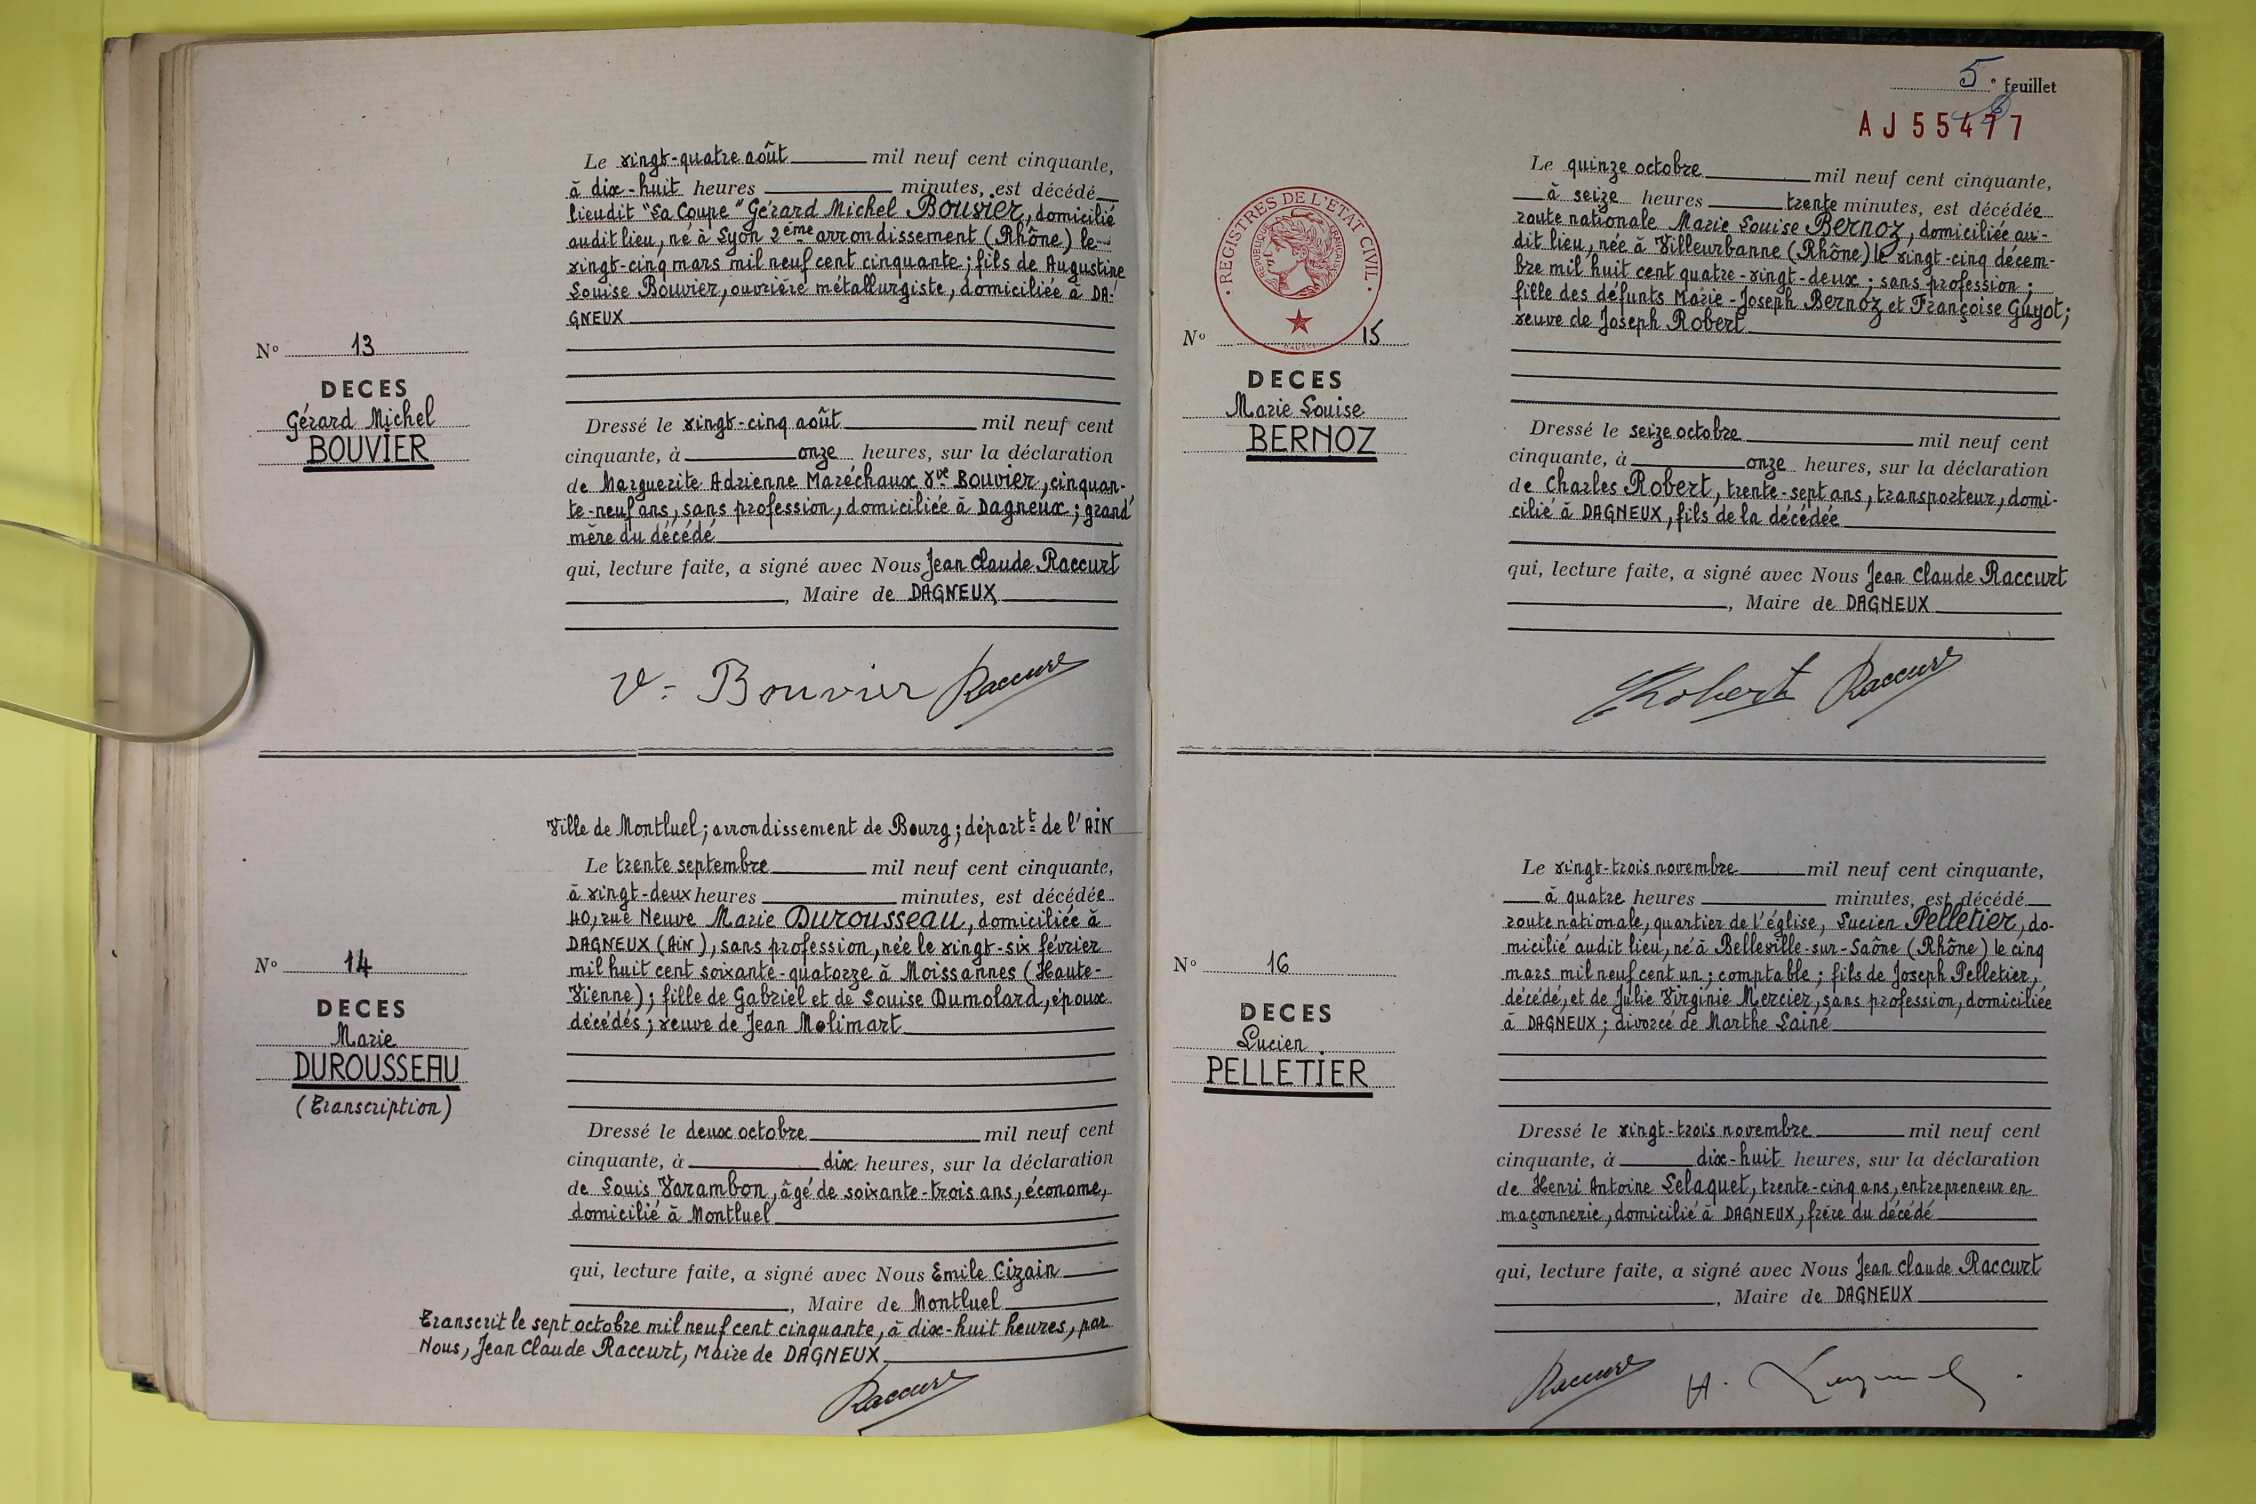 Le vingt-quatre août mil neuf cent cinquante,
à dix-huit heures minutes, est décédé
lieudit "La Coupe" Gérard Michel Bouvier, domicilié
audit lieu, né à Lyon 2ème arrondissement (Rhône) le
vingt-cinq mars mil neuf cent cinquante ; fils de Augustine
Louise Bouvier, ouvrière métallurgiste, domiciliée à DA-
GNEUX
N° 13
DECES
Gérard Michel
BOUVIER
Dressé le vingt-cinq août mil neuf cent
cinquante, à onze heures, sur la déclaration
de Marguerite Adrienne Maréchaux vve Bouvier, cinquan-
te-neuf ans, sans profession, domiciliée à Dagneux ; grand'
mère du décédé
qui, lecture faite, a signé avec Nous Jean Claude Raccurt
, Maire de DAGNEUX
V= Bouvier Raccurt
Ville de Montluel ; arrondissement de Bourg ; départt de l'AIN
Le trente septembre mil neuf cent cinquante,
à vingt-deux heures minutes, est décédée
40, rue Neuve Marie Durousseau, domiciliée à
DAGNEUX (AIN), sans profession, née le vingt-six février
mil huit cent soixante-quatorze à Moissannes (Haute-
Vienne) ; fille de Gabriel et de Louise Dumolard, époux
décédés ; veuve de Jean Molimart
N° 14
DECES
Marie
DUROUSSEAU
(Transcription)
Dressé le deux octobre mil neuf cent
cinquante, à dix heures, sur la déclaration
de Louis Varambon, âgé de soixante-trois ans, économe,
domicilié à Montluel
qui, lecture faite, a signé avec Nous Emile Cizain
, Maire de Montluel
Transcrit le sept octobre mil neuf cent cinquante, à dix-huit heures, par
Nous, Jean Claude Raccurt, Maire de DAGNEUX
Raccurt
5e feuillet
AJ 55477
REGISTRES DE L'ETAT CIVIL
REPUBLIQUE FRANCAISE
Le quinze octobre mil neuf cent cinquante,
à seize heures trente minutes, est décédée
route nationale Marie Louise Bernoz, domiciliée au-
dit lieu, née à Villeurbanne (Rhône) le vingt-cinq décem-
bre mil huit cent quatre-vingt-deux ; sans profession ;
fille des défunts Marie-Joseph Bernoz et Françoise Guyot ;
veuve de Joseph Robert
N° 15
DECES
Marie Louise
BERNOZ
Dressé le seize octobre mil neuf cent
cinquante, à onze heures, sur la déclaration
de Charles Robert, trente-sept ans, transporteur, domi-
cilié à DAGNEUX, fils de la décédée
qui, lecture faite, a signé avec Nous Jean Claude Raccurt
, Maire de DAGNEUX
CRobert Raccurt
Le vingt-trois novembre mil neuf cent cinquante,
à quatre heures minutes, est décédé
route nationale, quartier de l'église, Lucien Pelletier, do-
micilié audit lieu, né à Belleville-sur-Saône (Rhône) le cinq
mars mil neuf cent un ; comptable ; fils de Joseph Pelletier,
décédé, et de Julie Virginie Mercier, sans profession, domiciliée
à DAGNEUX ; divorcé de Marthe Lainé
N° 16
DECES
Lucien
PELLETIER
Dressé le vingt-trois novembre mil neuf cent
cinquante, à dix-huit heures, sur la déclaration
de Henri Antoine Lelaquet, trente-cinq ans, entrepreneur en
maçonnerie, domicilié à DAGNEUX, frère du décédé
qui, lecture faite, a signé avec Nous Jean Claude Raccurt
, Maire de DAGNEUX
Raccurt H.